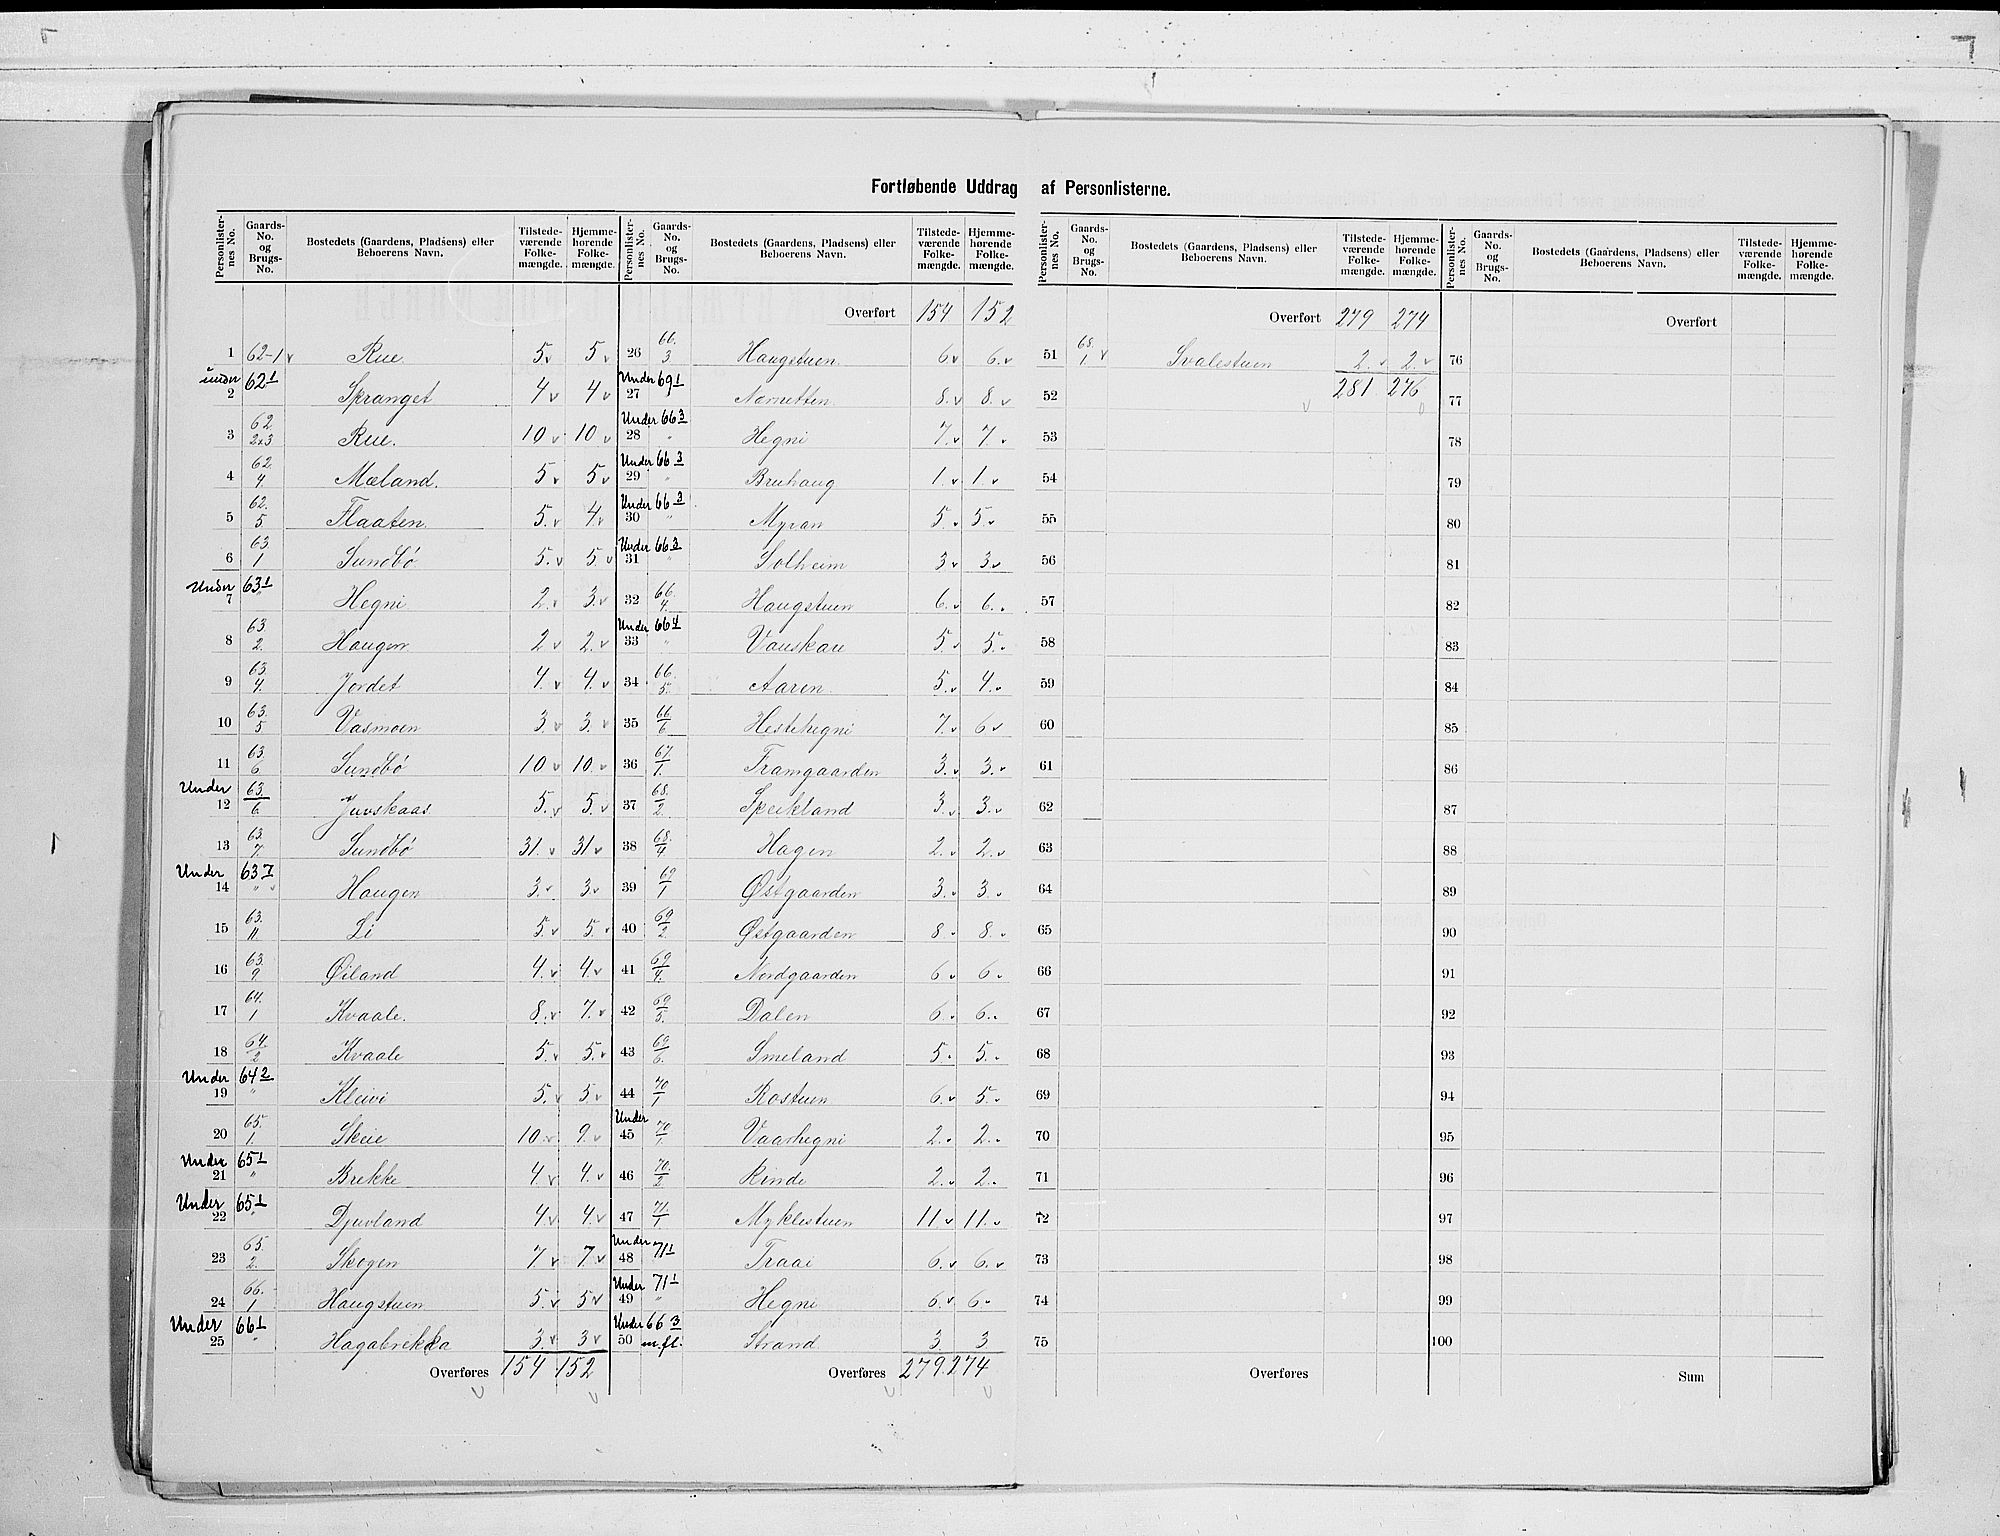 Fortløbende Uddrag af Personlisterne.
Personlister-nes No. Gaards-No. og Brugs-No. Bostedets (Gaardens, Pladsens) eller Beboerens Navn. Tilstede-værende Folke-mængde. Hjemme-hørende Folke-mængde.
1 62-1 v Rue. 5 v 5 v
under 2 62 1 Spranget 4 v 4 v
3 62. 2&3 Rue. 10 v 10 v
4 62. 4. Mæland. 5 v 5 v
5 62. 5. Flaaten. 5. v 4. v
6 63. 1 Sundbø 5. v 5 v
Under 7 63 1 " Hegni 2. v 3. v
8 63. 2. Haugen 2 v 2. v
9 63. 4. Jordet 4. v 4. v
10 63. 5 Vasmoen 3. v 3. v
11 63. 6 Sundbø 10. v 10. v
Under 12 63. 6. Juvskaas 5. v 5. v
13 63. 7. Sundbø 31. v 31 v
Under 14 63 7 " v Haugen 3. v 3 v
15 63. 11. Li 5. v 5. v
16 63. 9 Øiland 4. v 4 v
17 64. 1 Kvaale. 8. v 7. v
18 64. 2 Kvaale 5. v 5. v
Under 19 64 2 " Kleivi 5. v 5 v
20 65. 1. Skeie 10 v 9. v
Under 21 65 1 " Brekke 4 v 4. v
Under 22 65 1 " Djuvland 4 v 4. v
23 65. 2. Skogen 7 v 7 v
24 66. 1 Haugstuen 5. v 5 v
Under 25 66 1 " Hagabrekka 3. v 3 v
Overføres 154 152
v v
Personlister-nes No. Gaards-No. og Brugs-No. Bostedets (Gaardens, Pladsens) eller Beboerens Navn. Tilstede-værende Folke-mængde. Hjemme-hørende Folke-mængde.
Overført 154 152
26 66. 3. Haugstuen 6 v 6. v
Under 27 69 1 8. v 8. v
Under 28 66 3 " Hegni 7. v 7. v
Under 29 66 3 " Bruhaug 1. v 1. v
Under 30 66 3 " Myran 5. v 5. v
Under 31 66 3 " Solheim 3 v 3. v
32 66. 4. Haugstuen 6. v 6. v
Under 33 66 4 " Vauskau 5. v 5. v
34 66. 5. Aaren. 5. v 4. v
35 66 6 Hestehegni 7. v 6 v
36 67 1. Framgaarden 3. v 3. v
37 68. 2. Speikland 3. v 3. v
38 68. 4. Hagen 2. v 2. v
39 69 1 Østgaarden 3. v 3. v
40 69 2. Østgaarden 8. v 8. v
41 69 4. Nordgaarden 6 v 6. v
42 69 5. Dalen 6. v 6. v
43 69 6. Smeland 5. v 5. v
44 70 1 Rostuen 6. v 5. v
Under 45 70 1. Vaarhegni 2. v 2. v
46 70. 2 Rinde 2. v 2. v
47 71. 1. Myklestuen 11 v 11. v
Under 48 71 1 Traai 6. v 6. v
Under 49 71 1 " Hegni 6. v 6. v
Under 50 66 3 m.fl. Strand 3. 3
Overføres 279. 274
v v
Personlister-nes No. Gaards-No. og Brugs-No. Bostedets (Gaardens, Pladsens) eller Beboerens Navn. Tilstede-værende Folke-mængde. Hjemme-hørende Folke-mængde.
Overført 279 274
51 68. 1. v Svalestuen 2. v 2. v
52 281. 276
53
54
55
56
57
58
59
60
61
62
63
64
65
66
67
68
69
70
71
72
73
74
75
Overføres
Personlister-nes No. Gaards-No. og Brugs-No. Bostedets (Gaardens, Pladsens) eller Beboerens Navn. Tilstede-værende Folke-mængde. Hjemme-hørende Folke-mængde.
Overført
76
77
78
79
80
81
82
83
84
85
86
87
88
89
90
91
92
93
94
95
96
97
98
99
100
Sum